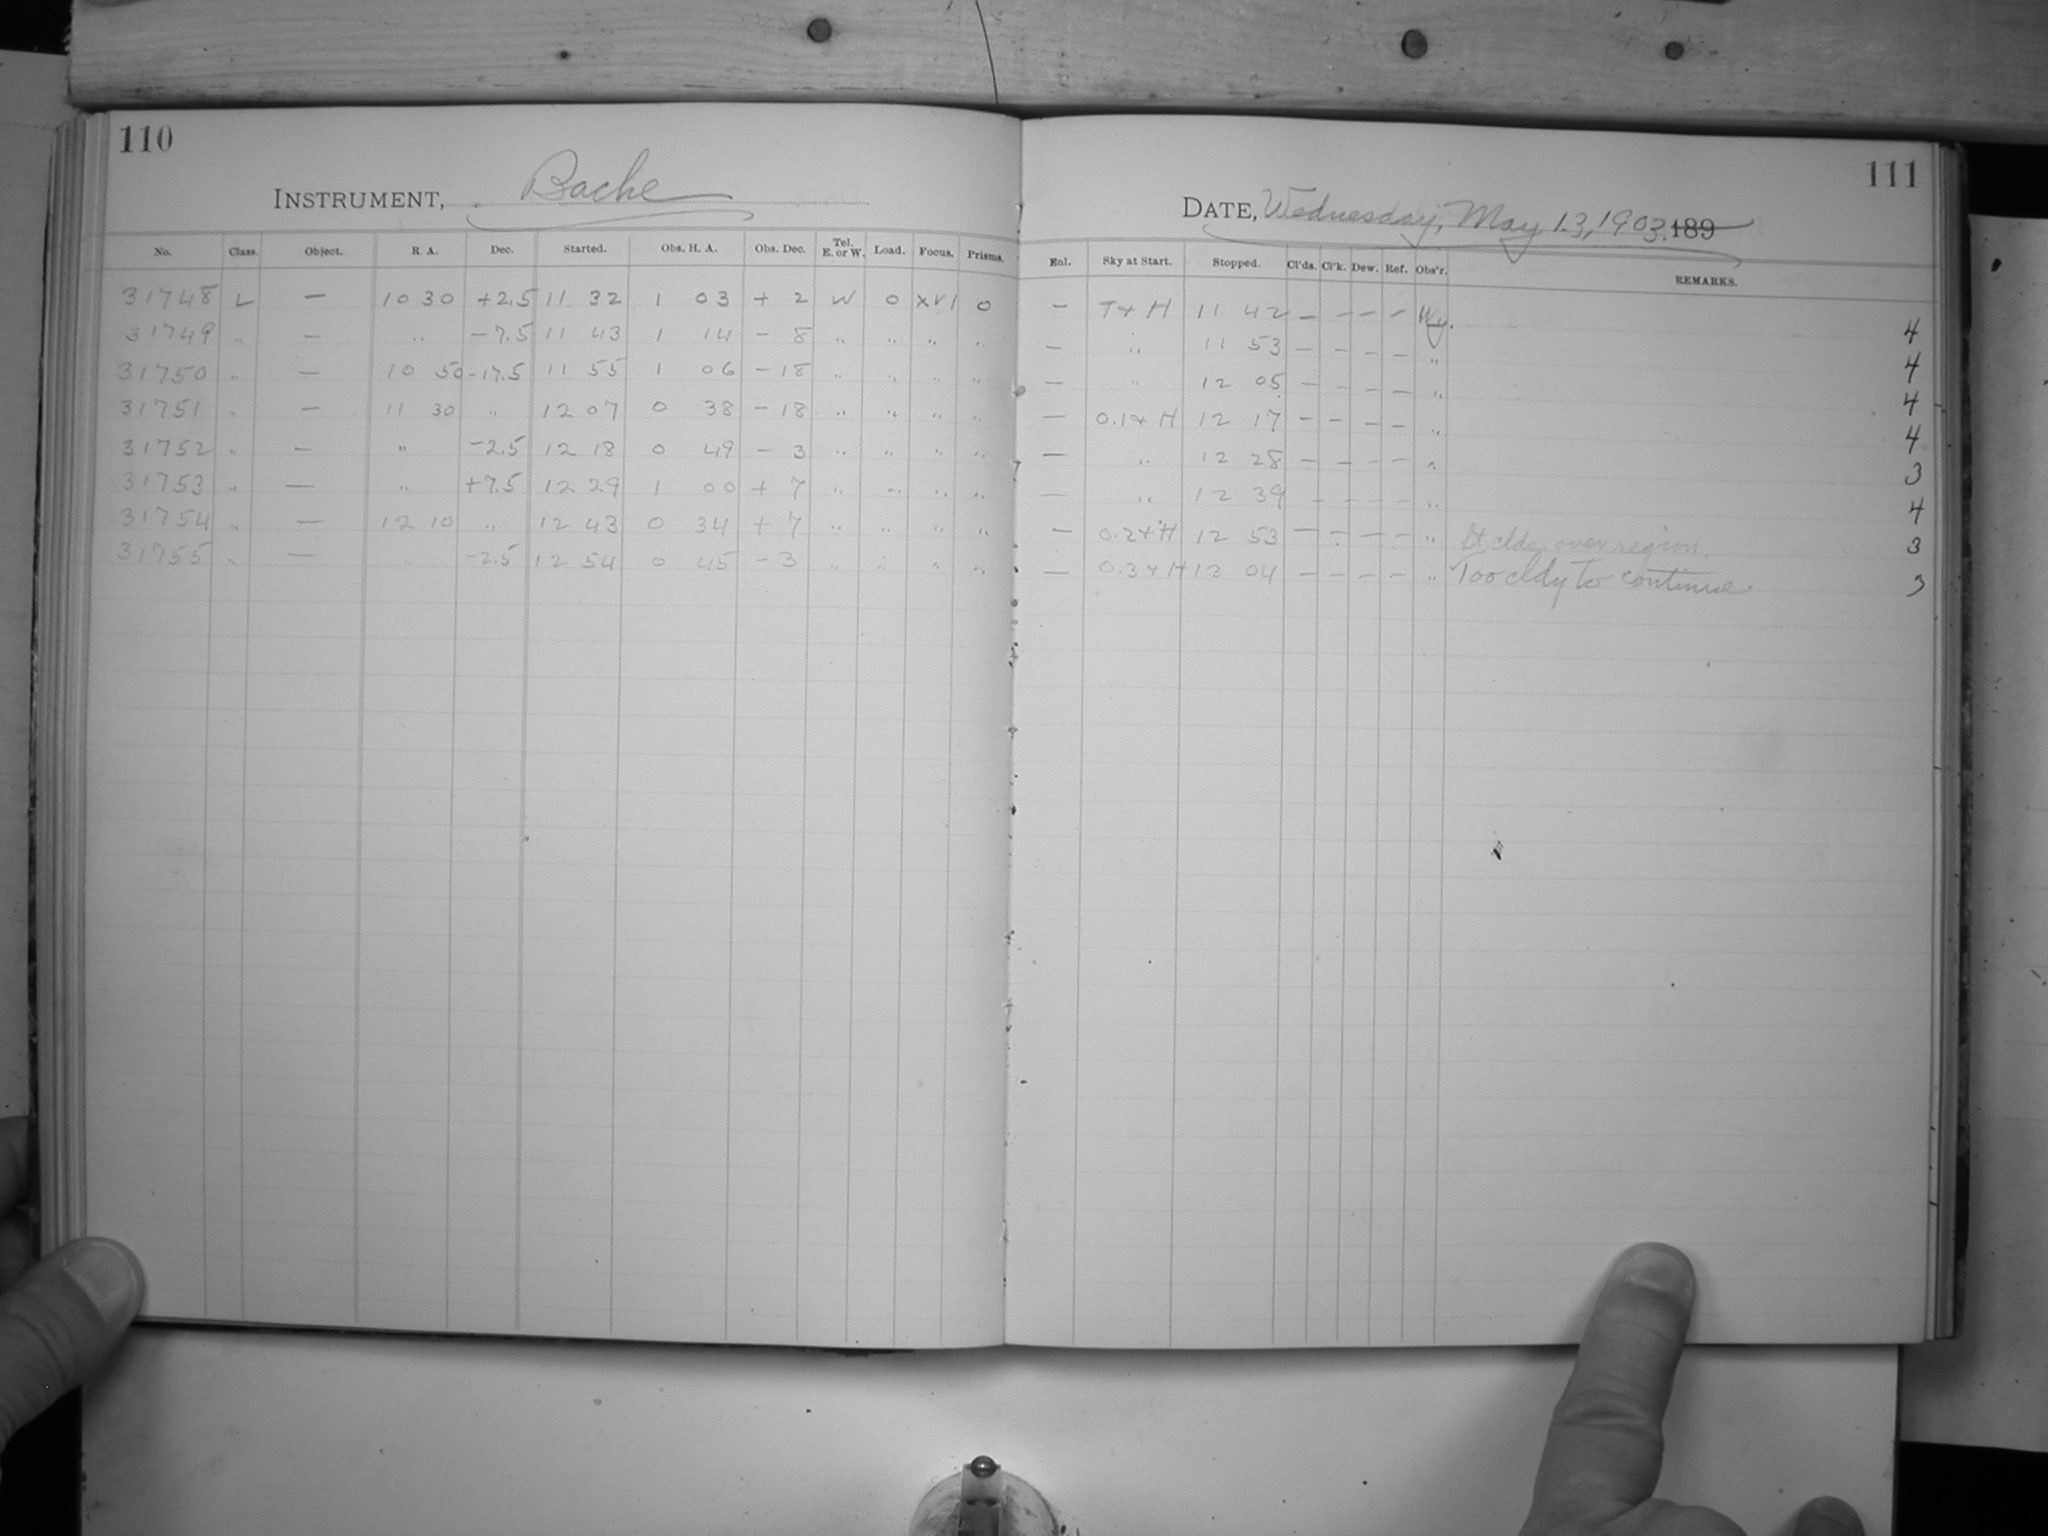 110
INSTRUMENT, Bache
No. Class. Object. R. A. Dec. Started. Obs. H. A. Obs. Dec. Tel. E. or W. Load. Focus. Prisms.
31748 L — 10 30 +2.5 11 32 1 03 + 2 W 0 XVI 0
31749 " — " -7.5 11 43 1 14 - 8 " " " "
31750 " — 10 50 -17.5 11 55 1 06 - 18 " " " "
31751 " — 11 30 " 12 07 0 38 - 18 " " " "
31752 " — " -2.5 12 18 0 49 - 3 " " " "
31753 " — " +7.5 12 29 1 00 + 7 " " " "
31754 " — 12 10 " 12 43 0 34 + 7 " " " "
31755 " — " -2.5 12 54 0 45 - 3 " " " "
111
DATE, Wednesday, May 13, 1903. 189
Enl. Sky at Start. Stopped. Cl'ds. Cl'k. Dew. Ref. Obs'r. REMARKS.
— T + H 11 42 — — — — Wy. 4
— " 11 53 — — — — " 4
— " 12 05 — — — — " 4
— 0.1 + H 12 17 — — — — " 4
— " 12 28 — — — — " 3
— " 12 39 — — — — " 4
— 0.2 + H 12 53 — — — — " Lt. clds. over region. 3
— 0.3 + H 13 04 — — — — " Too cldy to continue. 3